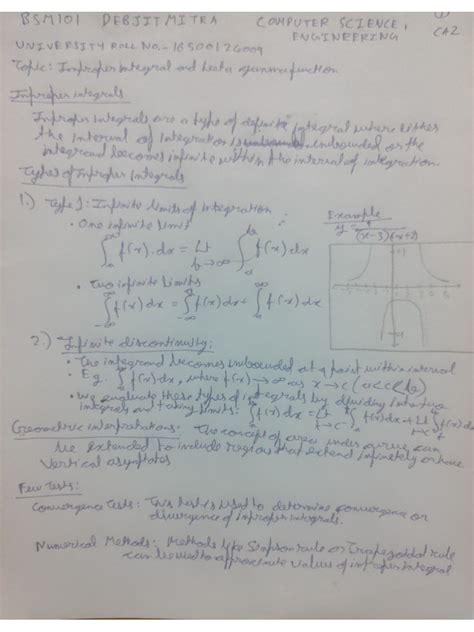 BSM101 DEBJIT MITRA COMPUTER SCIENCE & ENGINEERING CA2
UNIVERSITY ROLL NO.- 18500126009
Topic: Improper integral and beta gamma function
Improper integrals
Improper integrals are a type of definite integral where either
the interval of integration is unbounded or the
integrand becomes infinite within the interval of integration.
Types of Improper Integrals
1.) Type 1: Infinite limits of integration:
• One infinite limit
∫ₐ^∞ f(x).dx = Lt b→∞ ∫ₐ^b f(x)dx
• Two infinite limits
∫₋∞^∞ f(x)dx = ∫ f(x)dx + ∫ f(x)dx
Example
(x-3)(x+2)
2.) Infinite discontinuity:
• The integrand becomes unbounded at a point within interval
• E.g. ∫ f(x)dx, where f(x)→∞ as x→c (a<c<b)
• We evaluate these types of integrals by dividing into two
integrals and taking limits: ∫f(x)dx = Lt ∫f(x)dx + Lt ∫f(x)dx
Geometric interpretations: The concept of area under curve can
be extended to include regions that extend infinitely or have
vertical asymptotes
Few Tests:
Convergence Tests: This test is used to determine convergence or
divergence of improper integrals.
Numerical Methods: Methods like Simpson rule or Trapezoidal rule
can be used to approximate values of improper integral